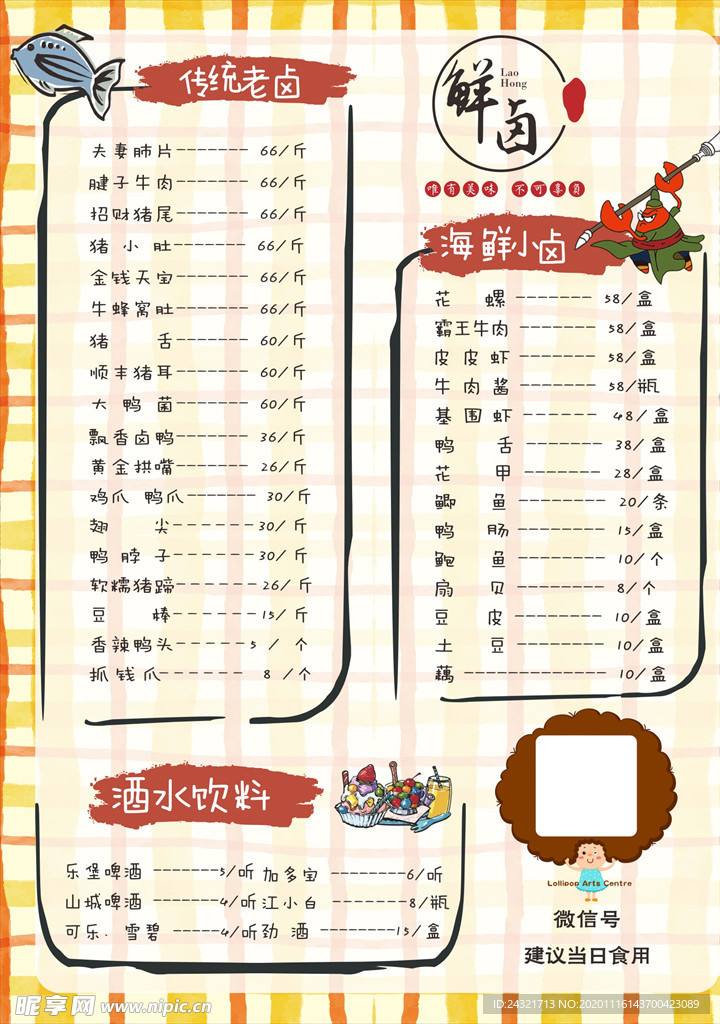 传统老卤
夫妻肺片------- 66/斤
腱子牛肉------- 66/斤
招财猪尾------- 66/斤
猪小肚------- 66/斤
金钱天宝------- 66/斤
牛蜂窝肚------- 66/斤
猪舌------- 60/斤
顺丰猪耳------- 60/斤
大鸭菌------- 60/斤
飘香卤鸭------- 36/斤
黄金拱嘴------- 26/斤
鸡爪 鸭爪------- 30/斤
翅尖------30/斤
鸭脖子------30/斤
软糯猪蹄------26/斤
豆棒------15/斤
香辣鸭头------5/个
抓钱爪----- 8/个
鲜卤
Lao
Hong
唯有美味 不可辜負
海鲜小卤
花螺------- 58/盒
霸王牛肉------- 58/盒
皮皮虾------- 58/盒
牛肉酱------- 58/瓶
基围虾------ 48/盒
鸭舌------- 38/盒
花甲------- 28/盒
鲫鱼------- 20/条
鸭肠------- 15/盒
鲍鱼------- 10/个
扇贝------- 8/个
豆皮------- 10/盒
土豆------- 10/盒
藕------------ 10/盒
酒水饮料
乐堡啤酒-------5/听 加多宝--------6/听
山城啤酒-------4/听 江小白--------8/瓶
可乐.雪碧-----4/听 劲酒--------15/盒
Lollipop Arts Centre
微信号
建议当日食用
昵享网 www.nipic.cn
ID:24321713 NO:20201116143700423089